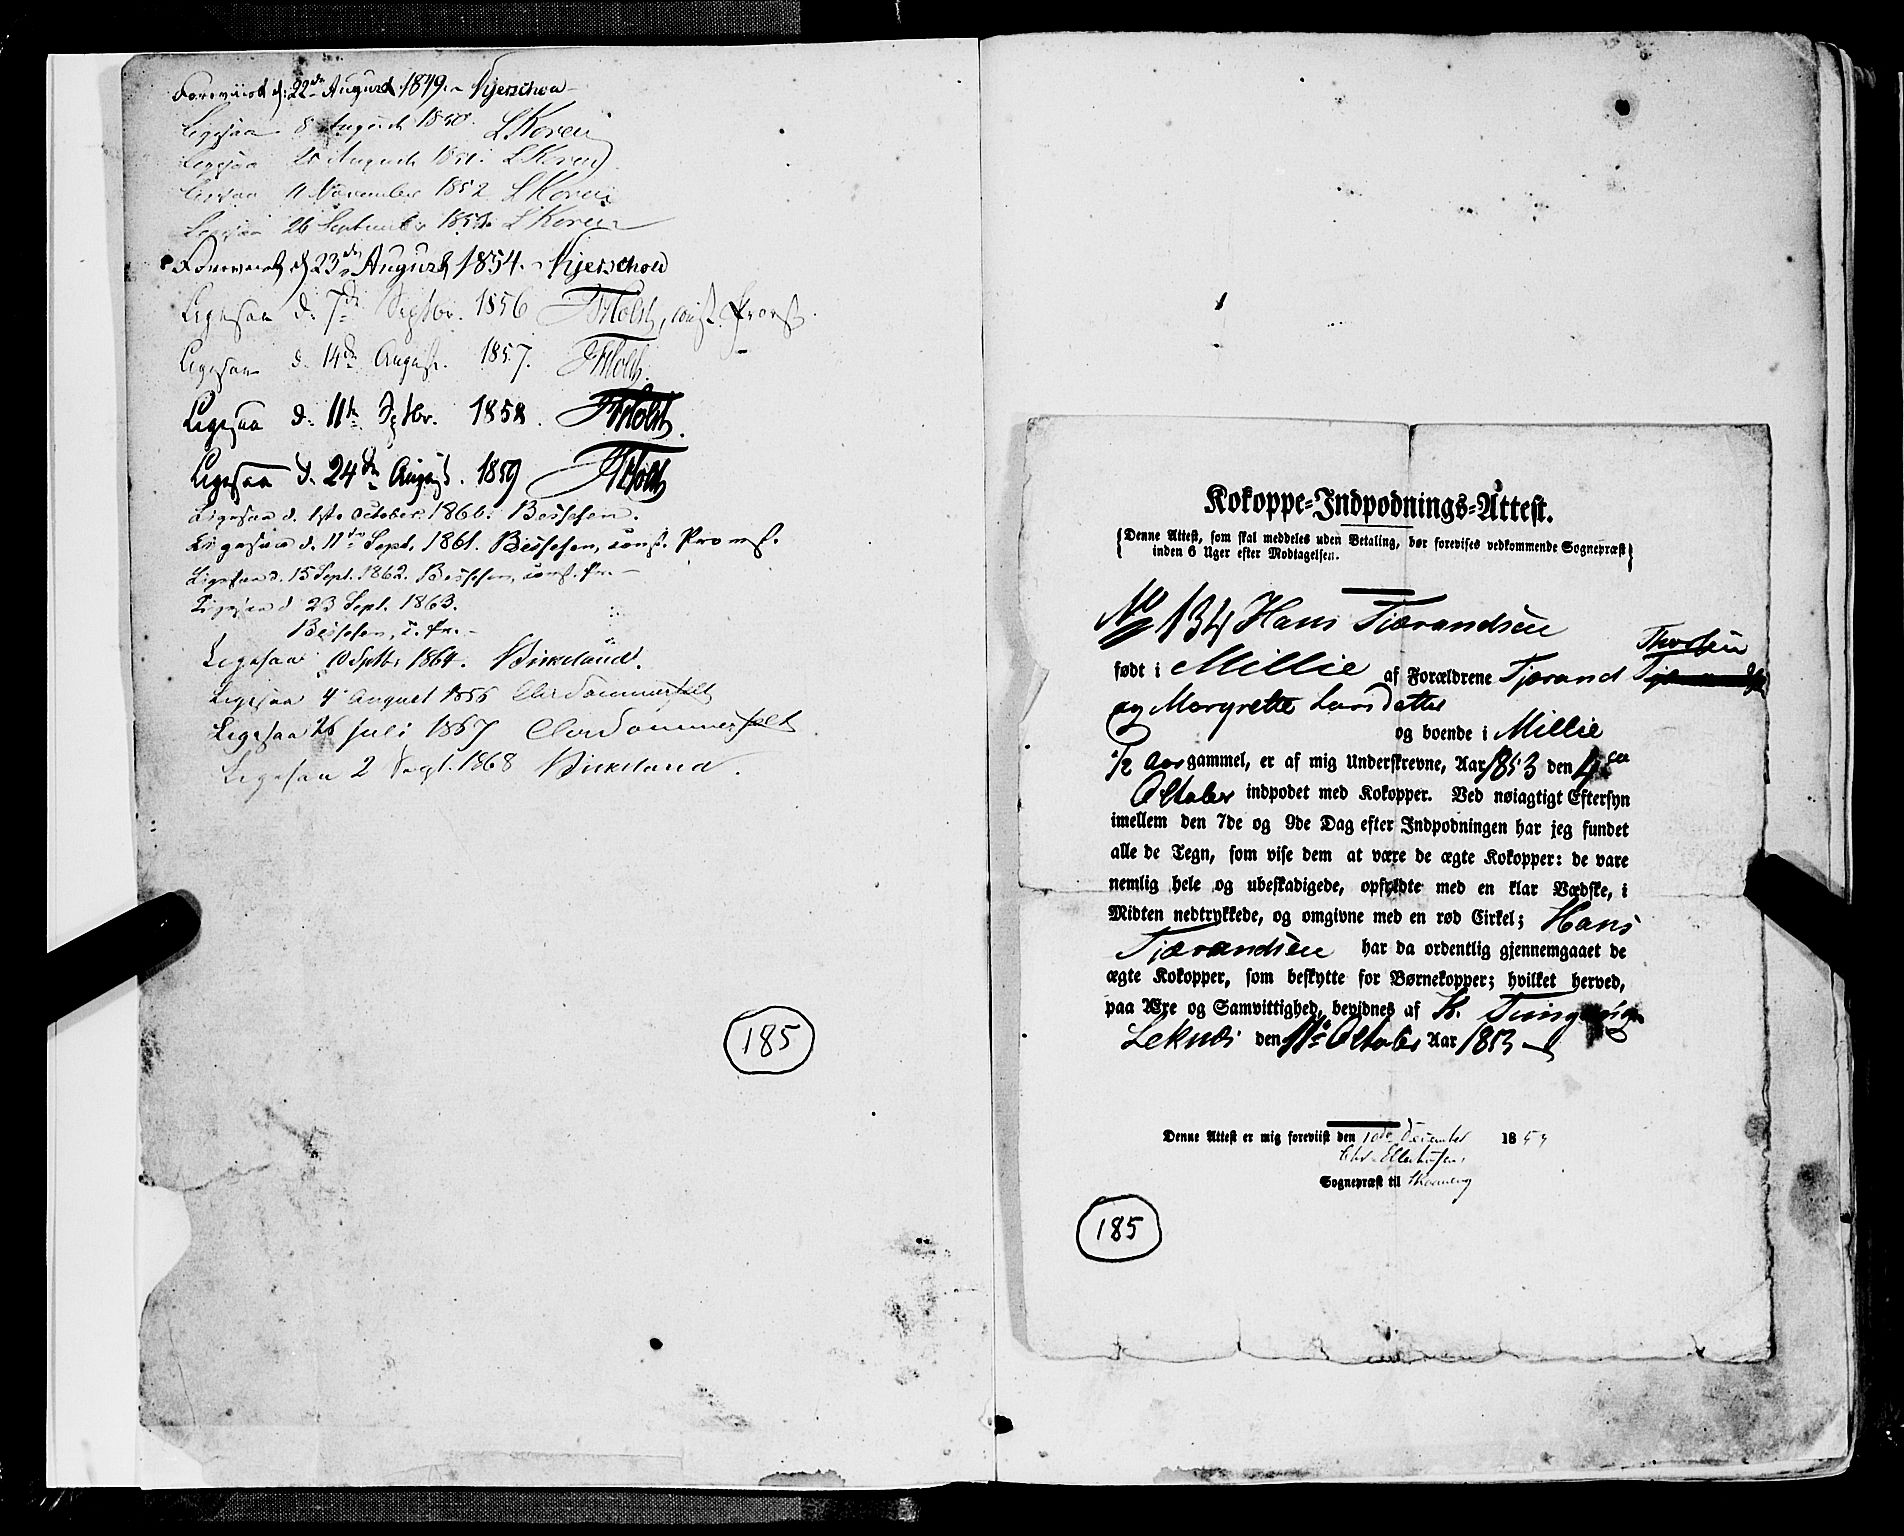 Foreviist d: 22de August 1849. Kjerschou
Ligesaa 8 August 1850. L Koren
Ligesaa 21 August 1851. L Koren
Ligesaa 11 November 1852 L Koren
Ligesaa 26 September 1853. L Koren
Foreviist d 23de August 1854. Kjerschow
Ligesaa d. 7de Septbr. 1856 FHolst, const. Provst.
Ligesaa d. 14de August. 1857. FHolst.
Ligesaa d. 11te Sptbr. 1858. FHolst.
Ligesaa d. 24de August. 1859 FHolst
Ligesaa d. 1ste October 1860. Bessesen.
Ligesaa d. 11te Sept. 1861. Bessesen, const. Provst.
Ligesaa d. 15 Sept. 1862. Bessesen, const. Pr. –
Ligesaa d 23 Sept. 1863.
Bessesen, c. Pr. –
Ligesaa Septbr 1864. Birkeland.
Ligesaa 4 August Chr Sommerfelt
Ligesaa 26 Juli 1867 Chr Sommerfelt
Ligesaa 2 Sept. 1868 Birkeland.
185
Kokoppe-Indpodnings-Attest.
(Denne Attest, som skal meddeles uden Betaling, bør forevises vedkommende Sognepræst
inden 6 Uger efter Modtagelsen.)
No 134 Hans Tjærandsen
født i Millie af Forældrene Tjærand Thorsen
og Margrette Larsdatter
og boende i Millie
1/2 Aar gammel, er af mig Underskrevne, Aar 1853 den 4de
Oktober indpodet med Kokopper. Ved nøiagtigt Eftersyn
imellem den 7de og 9de Dag efter Indpodningen har jeg fundet
alle de Tegn, som vise dem at være de ægte Kokopper: de vare
nemlig hele og ubeskadigede, opfyldte med en klar Vædske, i
Midten nedtrykkede, og omgivne med en rød Cirkel; Hans
Tjærandsen har da ordentlig gjennemgaaet de
ægte Kokopper, som beskytte for Børnekopper; hvilket herved,
paa Ære og Samvittighed, bevidnes af K.
Leknæs den 11te Oktober Aar 1853
Denne Attest er mig foreviist den 10de December 1853
Chr. Ellerhusen
Sognepræst til Skaanevig
185